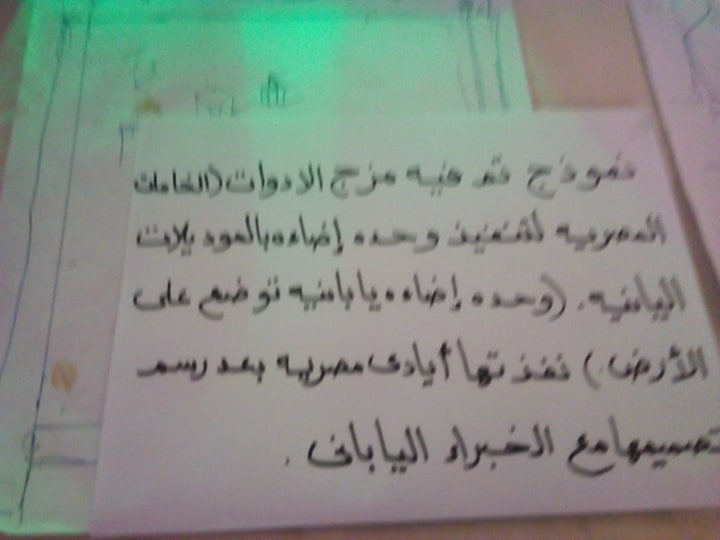 نموذج تم فيه مزج الادوات (الخامات
المصريه لتنفيذ وحده إضاءه بالموديلات
اليابانيه. (وحده إضاءه يابانيه توضع على
الأرض.) نفذتها أيادى مصريه بعد رسم
تصميمها مع الخبراء اليابانى .